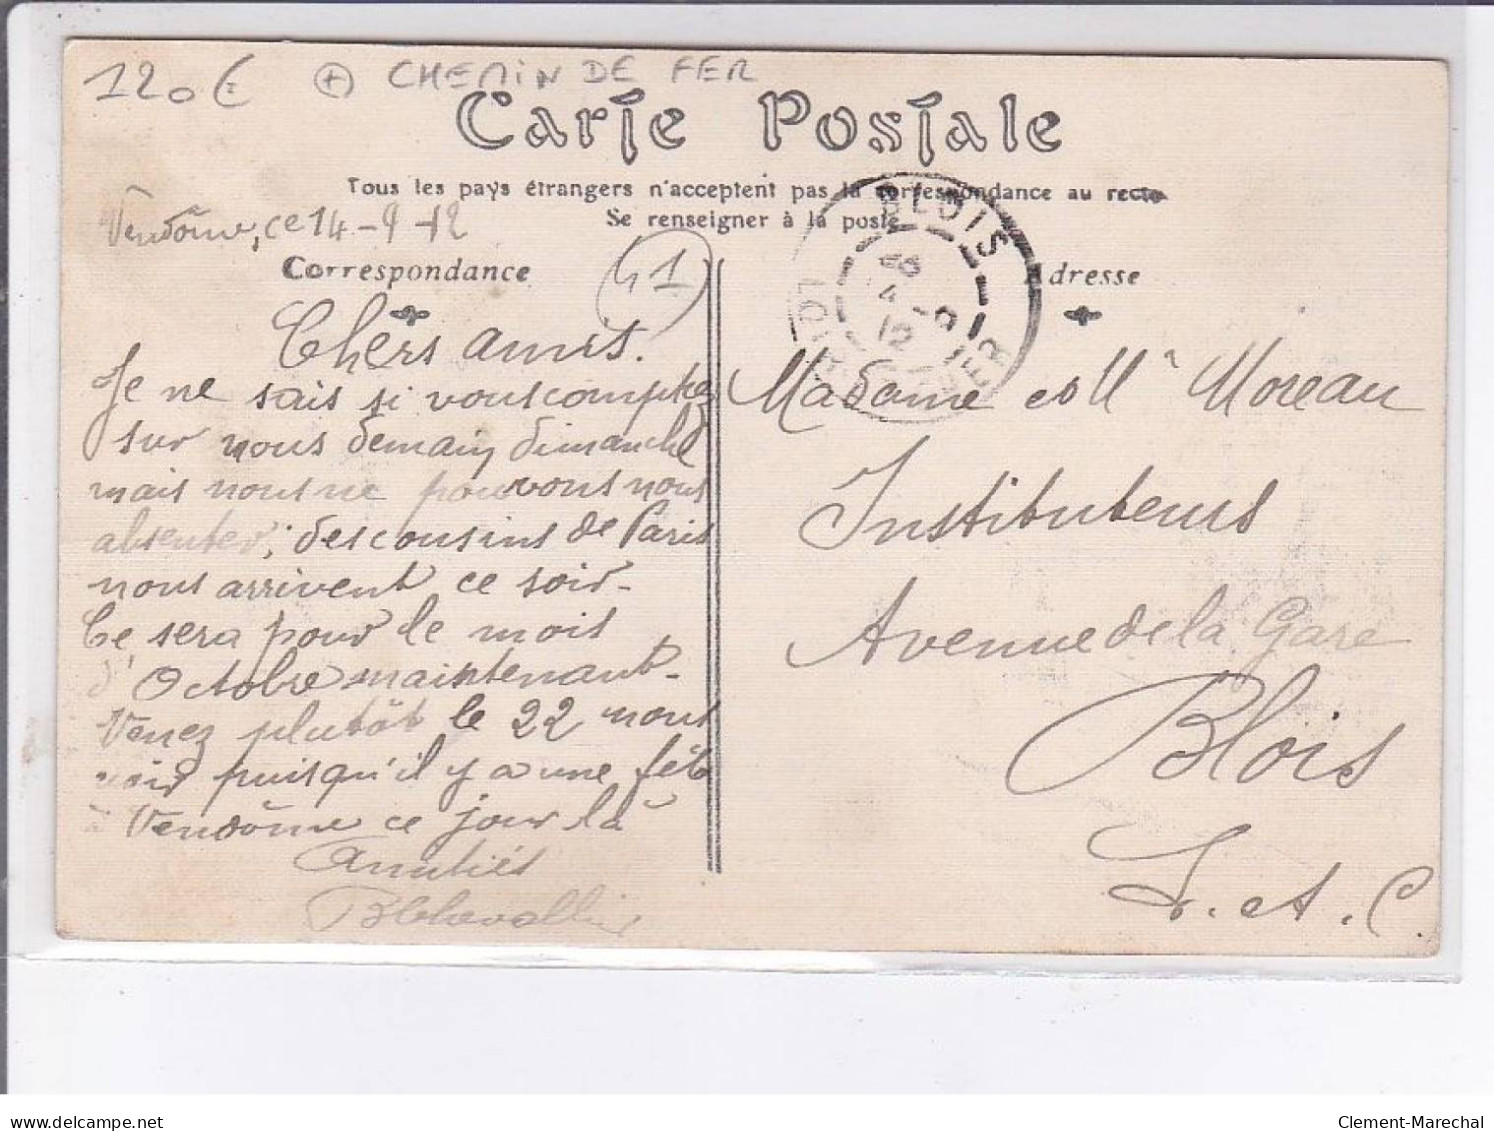 120€ + CHEMIN DE FER
Carte Postale
Tous les pays étrangers n'acceptent pas la correspondance au recto
Se renseigner à la poste
Vendôme, ce 14-9-12
41
BLOIS
LOIR ET CHER
4 - 9
12
Correspondance
Adresse
Chers amis.
Je ne sais si vous comptez
sur nous demain dimanche
mais nous ne pouvons nous
absenter, des cousins de Paris
nous arrivent ce soir-
Ce sera pour le mois
d'Octobre maintenant-
Venez plutôt le 22 nous
voir puisqu'il y a une fête
à Vendôme ce jour là
Amitiés
Madame et Mr Moreau
Instituteurs
Avenue de la Gare
Blois
L. et. C.
delcampe.net
Clement-Marechal